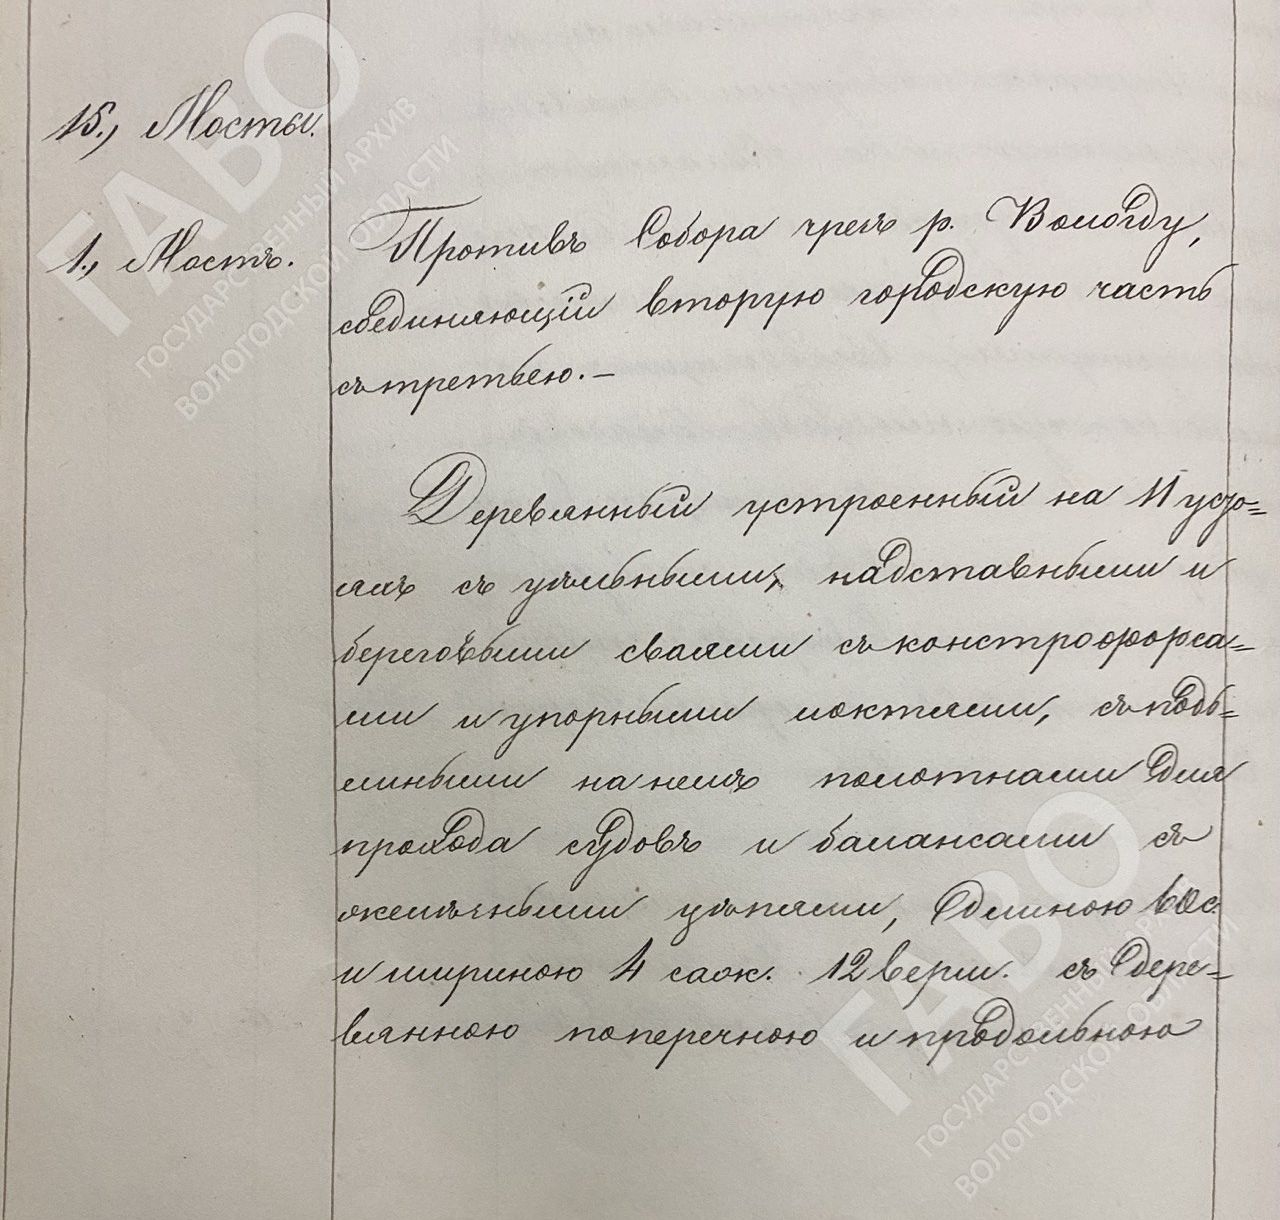 15., Мосты.
1., Мостъ.
Противъ Собора чрезъ р. Вологду,
соединяющій вторую городскую часть
съ третьею.—
Деревянный устроенный на 11 усто=
яхъ съ цѣльными, надставными и
береговыми сваями съ контрофорса=
ми и упорными локтями, съ подъ=
емными на немъ полотнами для
прохода судовъ и балансами съ
желѣзными цѣпями, длиною 60 с.
и шириною 4 саж. 12 верш. съ дере=
вянною поперечною и продольною
ГАВО
ГОСУДАРСТВЕННЫЙ АРХИВ
ВОЛОГОДСКОЙ ОБЛАСТИ
ГАВО
ГОСУДАРСТВЕННЫЙ АРХИВ
ВОЛОГОДСКОЙ ОБЛАСТИ